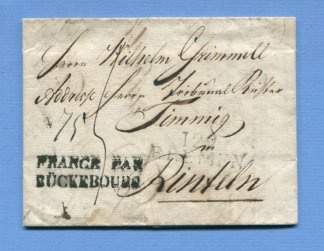 Herrn Wilhelm Grimmell
Addresse Herrn Tribunal Richter
75
Timmig
in
FRANCE PAR
BÜCKEBOURG
Rinteln